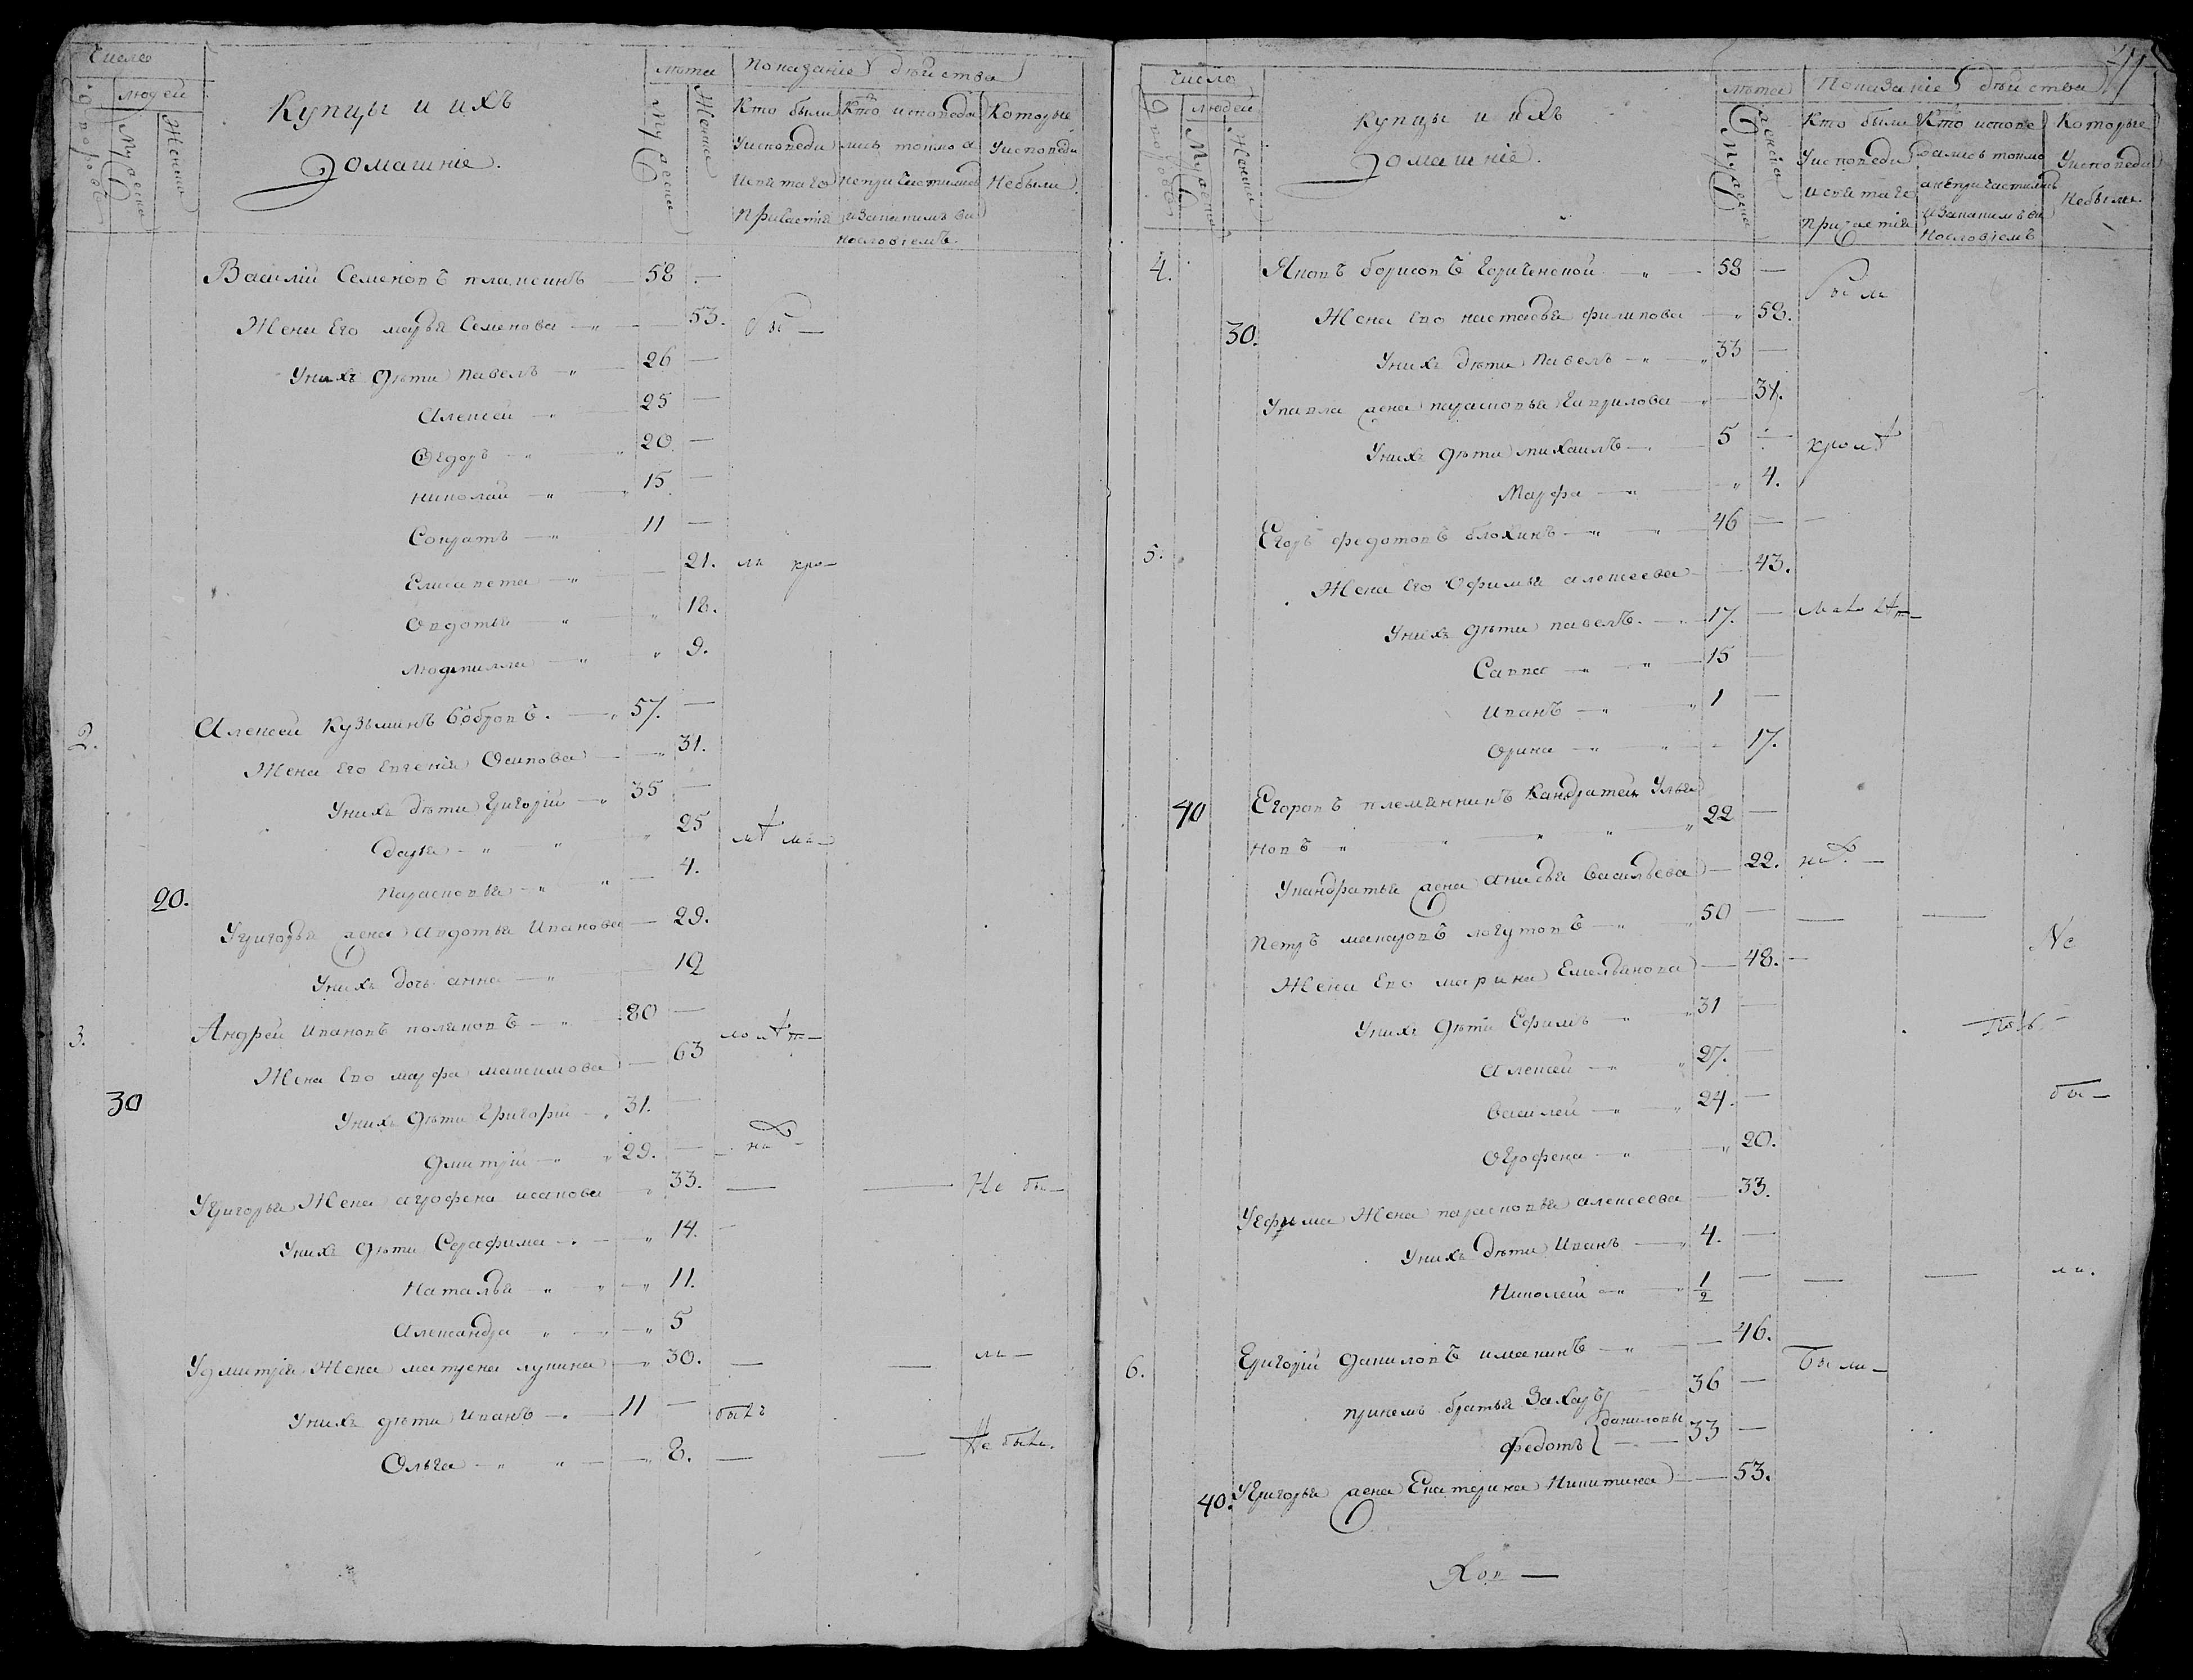 Число
людей
дворовъ
Мужеска
Женска
Купцы и ихъ
домашніе.
лѣта
Мужеска
Женска
Показаніе действа
Кто были
Уисповеди
исвѣтаго
Причастія
Кто исповеда
лись токмо а
непричастились
изакакимъ ви
нословіемъ.
Которые
Уисповеди
Небыли.
Василий Семеновъ плаксинъ — 58 —
Жена Его марья Семенова — 53. бы —
Унихъ дѣти павелъ — 26 —
Алексей — 25 —
Ѳедоръ — 20 —
николай — 15 —
Сократъ — 11 —
Елисавета — 21. ли кро —
Овдотья — 18.
людмилла — 9.
2. Алексей Кузьминъ бобровъ. — 57. —
Жена Его Евгенія Осипова — 31.
Унихъ дѣти Григорій — 35 —
дарья — 25 мѣ ма —
20. параскопья — 4.
Угригорья жена авдотья Иванова — 29.
Унихъ дочь анна — 12
3. Андрей Ивановъ поляковъ — 80 —
Жена Ево марфа максимова — 63
30 Унихъ дѣти Григорій — 31. —
дмитрій — 29. —
Угригорья Жена агрофена исакова — 33. — — Не бы —
Унихъ дѣти Серафима — 14. —
Наталья — 11.
Александра — 5
Удмитрія Жена матрена лукина — 30. — — ли —
Унихъ дѣти Иванъ — 11 — былъ
Ольга — 8. — — Не была.
Число
людей
дворовъ
Мужеска
Женска
Купцы и ихъ
домашніе.
лѣта
Мужеска
женска
Показаніе действа
Кто были
Уисповеди
исвѣтаго
причастія
Кто испове
дались токмо
анепричастились
изакакимъ ви
нословіемъ
Которые
Уисповеди
небыли.
4. Яковъ борисовъ Горченской — 58 — были
30. Жена Ево настасья филипова — 58.
Унихъ дѣти павелъ — 33 —
Упавла жена параскопья Гаврилова — 34.
Унихъ дѣти михаилъ — 5 — кромѣ
Марфа — 4.
5. Егоръ федотовъ блохинъ — 46 — —
Жена Его Офимья алексеева — 43.
Унихъ дѣти павелъ. — 17. —
Савва — 15 —
Иванъ — 1 —
Орина — 17.
40 Егоровъ племянникъ Кандратей Улья
новъ — 22 —
Укандратья жена Анисья Васильева — 22.
Петръ макаровъ логутовъ — 50 — — — Не
Жена Ево марина Емельянова — 48. —
Унихъ дѣти Ефимъ — 31 —
Алексей — 27. —
Василей — 24. — бы —
Огрофена — 20.
Уефима Жена параскопья алексеева — 33.
Унихъ дѣти Иванъ — 4. —
Николай — 1/2 — — — ли.
6. Григорій даниловъ имакинъ — 46. Были —
принемъ братья Захаръ — 36 —
даниловы
федотъ — 33 —
40. Угригорья жена Екатерина Никитина — 53.